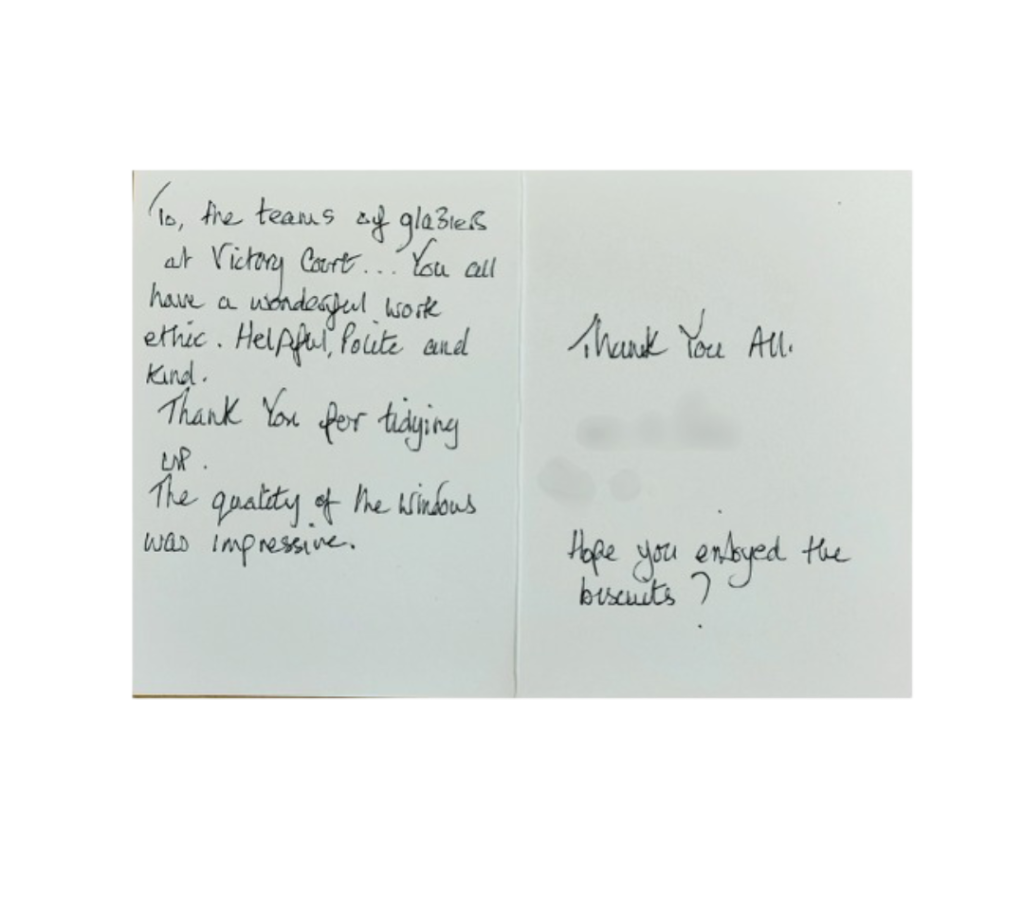 To, the teams of glaziers
at Victory Court... You all
have a wonderful work
ethic. Helpful, Polite and
kind.
Thank You for tidying
up.
The quality of the windows
was impressive.
Thank You All.
Hope you enjoyed the
biscuits ?